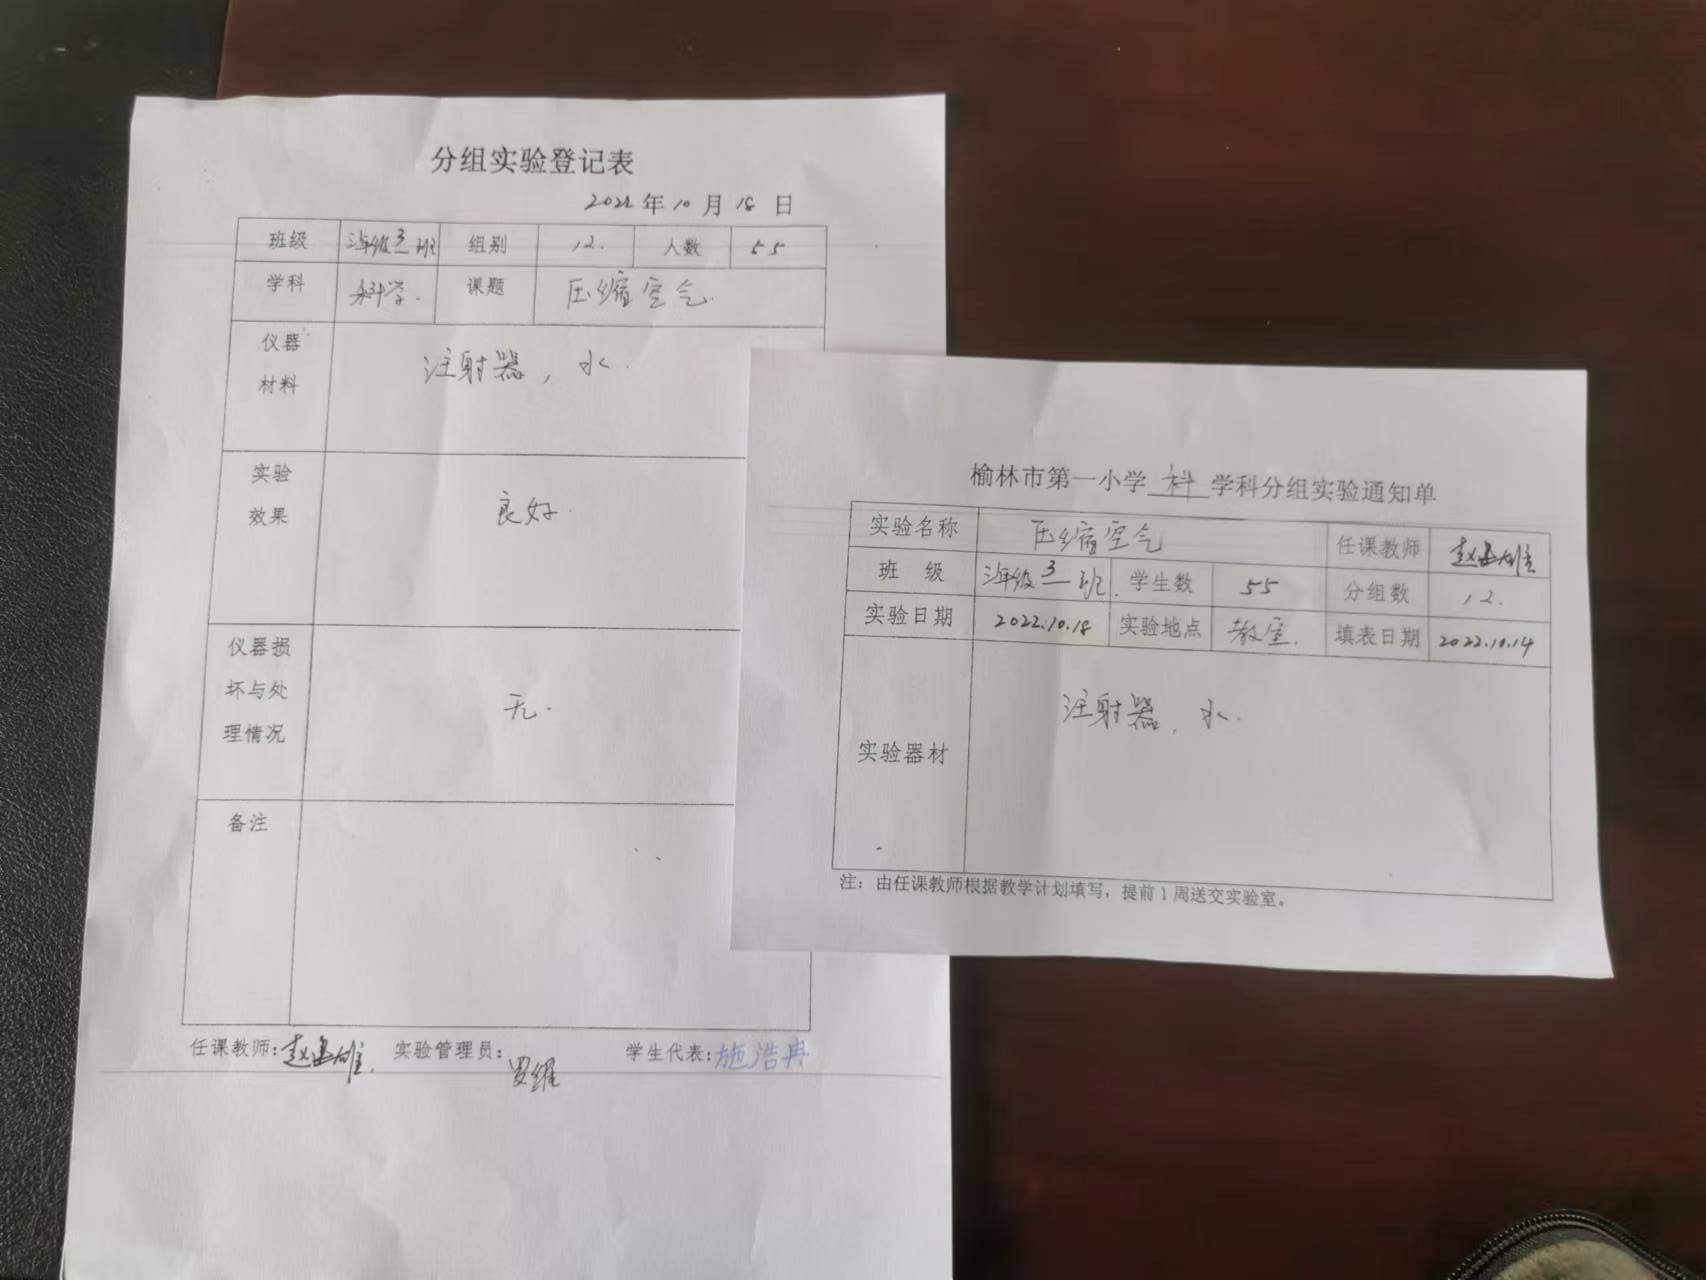 分组实验登记表
2022年10月18日
班级 三年级3班 组别 12. 人数 55
学科 科学. 课题 压缩空气.
仪器材料 注射器，水.
实验效果 良好.
仪器损坏与处理情况 无.
备注
任课教师: 赵 雄 实验管理员: 罗维 学生代表: 施浩冉
榆林市第一小学 科 学科分组实验通知单
实验名称 压缩空气 任课教师 赵 雄
班 级 三年级3班. 学生数 55 分组数 12.
实验日期 2022.10.18 实验地点 教室. 填表日期 2022.10.14
实验器材 注射器，水.
注：由任课教师根据教学计划填写，提前1周送交实验室。